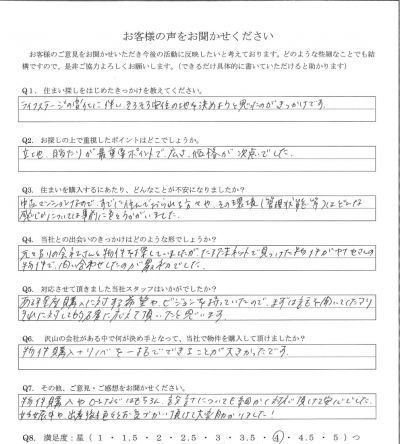 お客様の声をお聞かせください
お客様のご意見をお聞かせいただき今後の活動に反映したいと考えております。どのような些細なことでも結
構ですので、是非ご協力よろしくお願いします。(できるだけ具体的に書いていただけると助かります)
Q1. 住まい探しをはじめたきっかけを教えてください。
ライフステージの変化に伴い、そろそろ定住の地を決めようと思ったのがきっかけです。
Q2. お探しの上で重視したポイントはどこでしょうか。
立地、日当たりが最重要ポイントで、広さ、価格が次点でした。
Q3. 住まいを購入するにあたり、どんなことが不安になりましたか?
中古マンションなので、すでに住んでおられる方々や、その環境(管理状態等)はどんな
感じかについては事前に
Q4. 当社との出会いのきっかけはどのような形でしょうか?
元々別の会社さんで物件を探していましたが、たまたまネットで見つけた物件が
物件で、問い合わせしたのが最初でした。
Q5. 対応させて頂きました当社スタッフはいかがでしたか?
購入に対する希望や、ビジョンを持っていたので、まずは話を聞いていただけ
それに対しても的確に応えて頂いたと思います。
Q6. 沢山の会社がある中で何が決め手となって、当社で物件を購入して頂けましたか?
物件購入+リノベを一括でできることが大きかったです。
Q7. その他、ご意見・ご感想をお聞かせください。
物件購入やローンはもちろん、設計についても細かく対応頂けて安心でした。
頂けて大変助かりました!
Q8. 満足度:星(1・1.5・2・2.5・3・3.5・4・4.5・5)つ